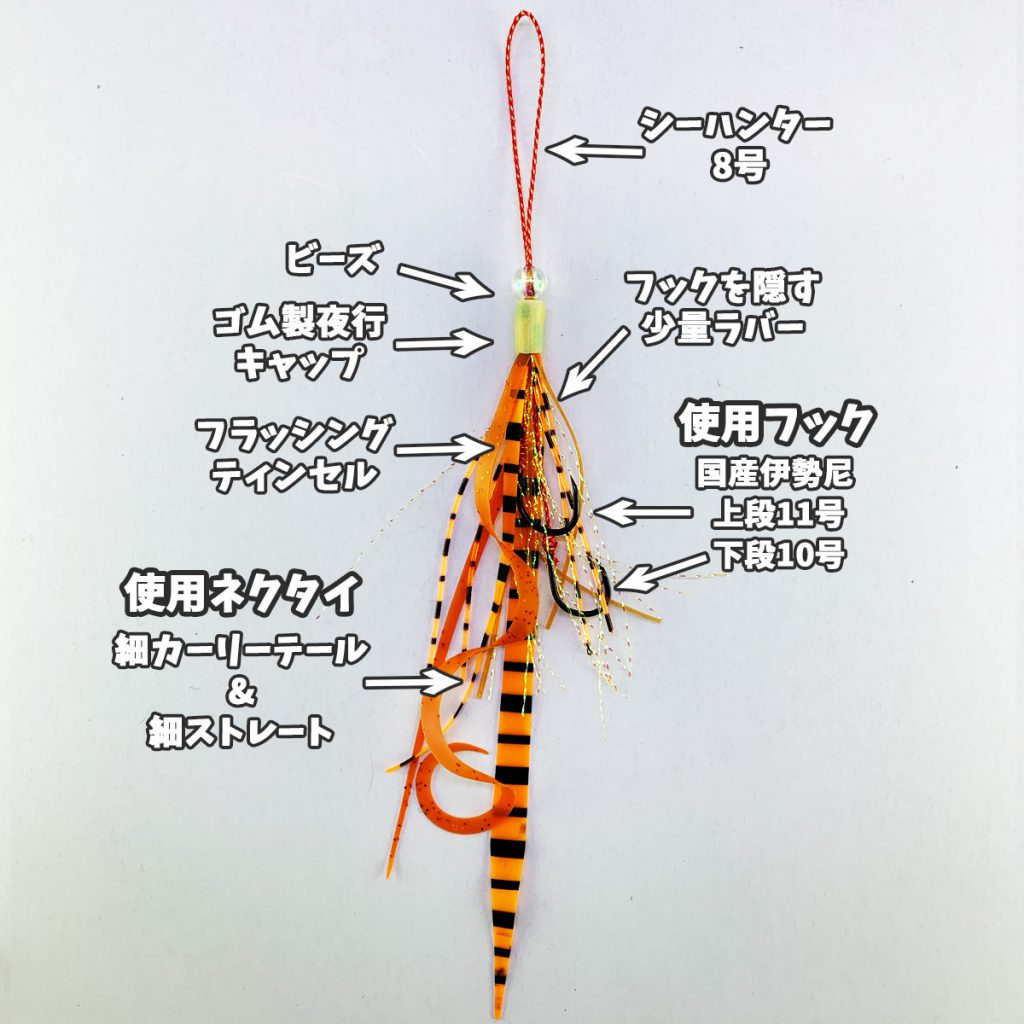 シーハンター
8号
ビーズ
ゴム製夜行
キャップ
フックを隠す
少量ラバー
フラッシング
ティンセル
使用フック
国産伊勢尼
上段11号
下段10号
使用ネクタイ
細カーリーテール
&
細ストレート